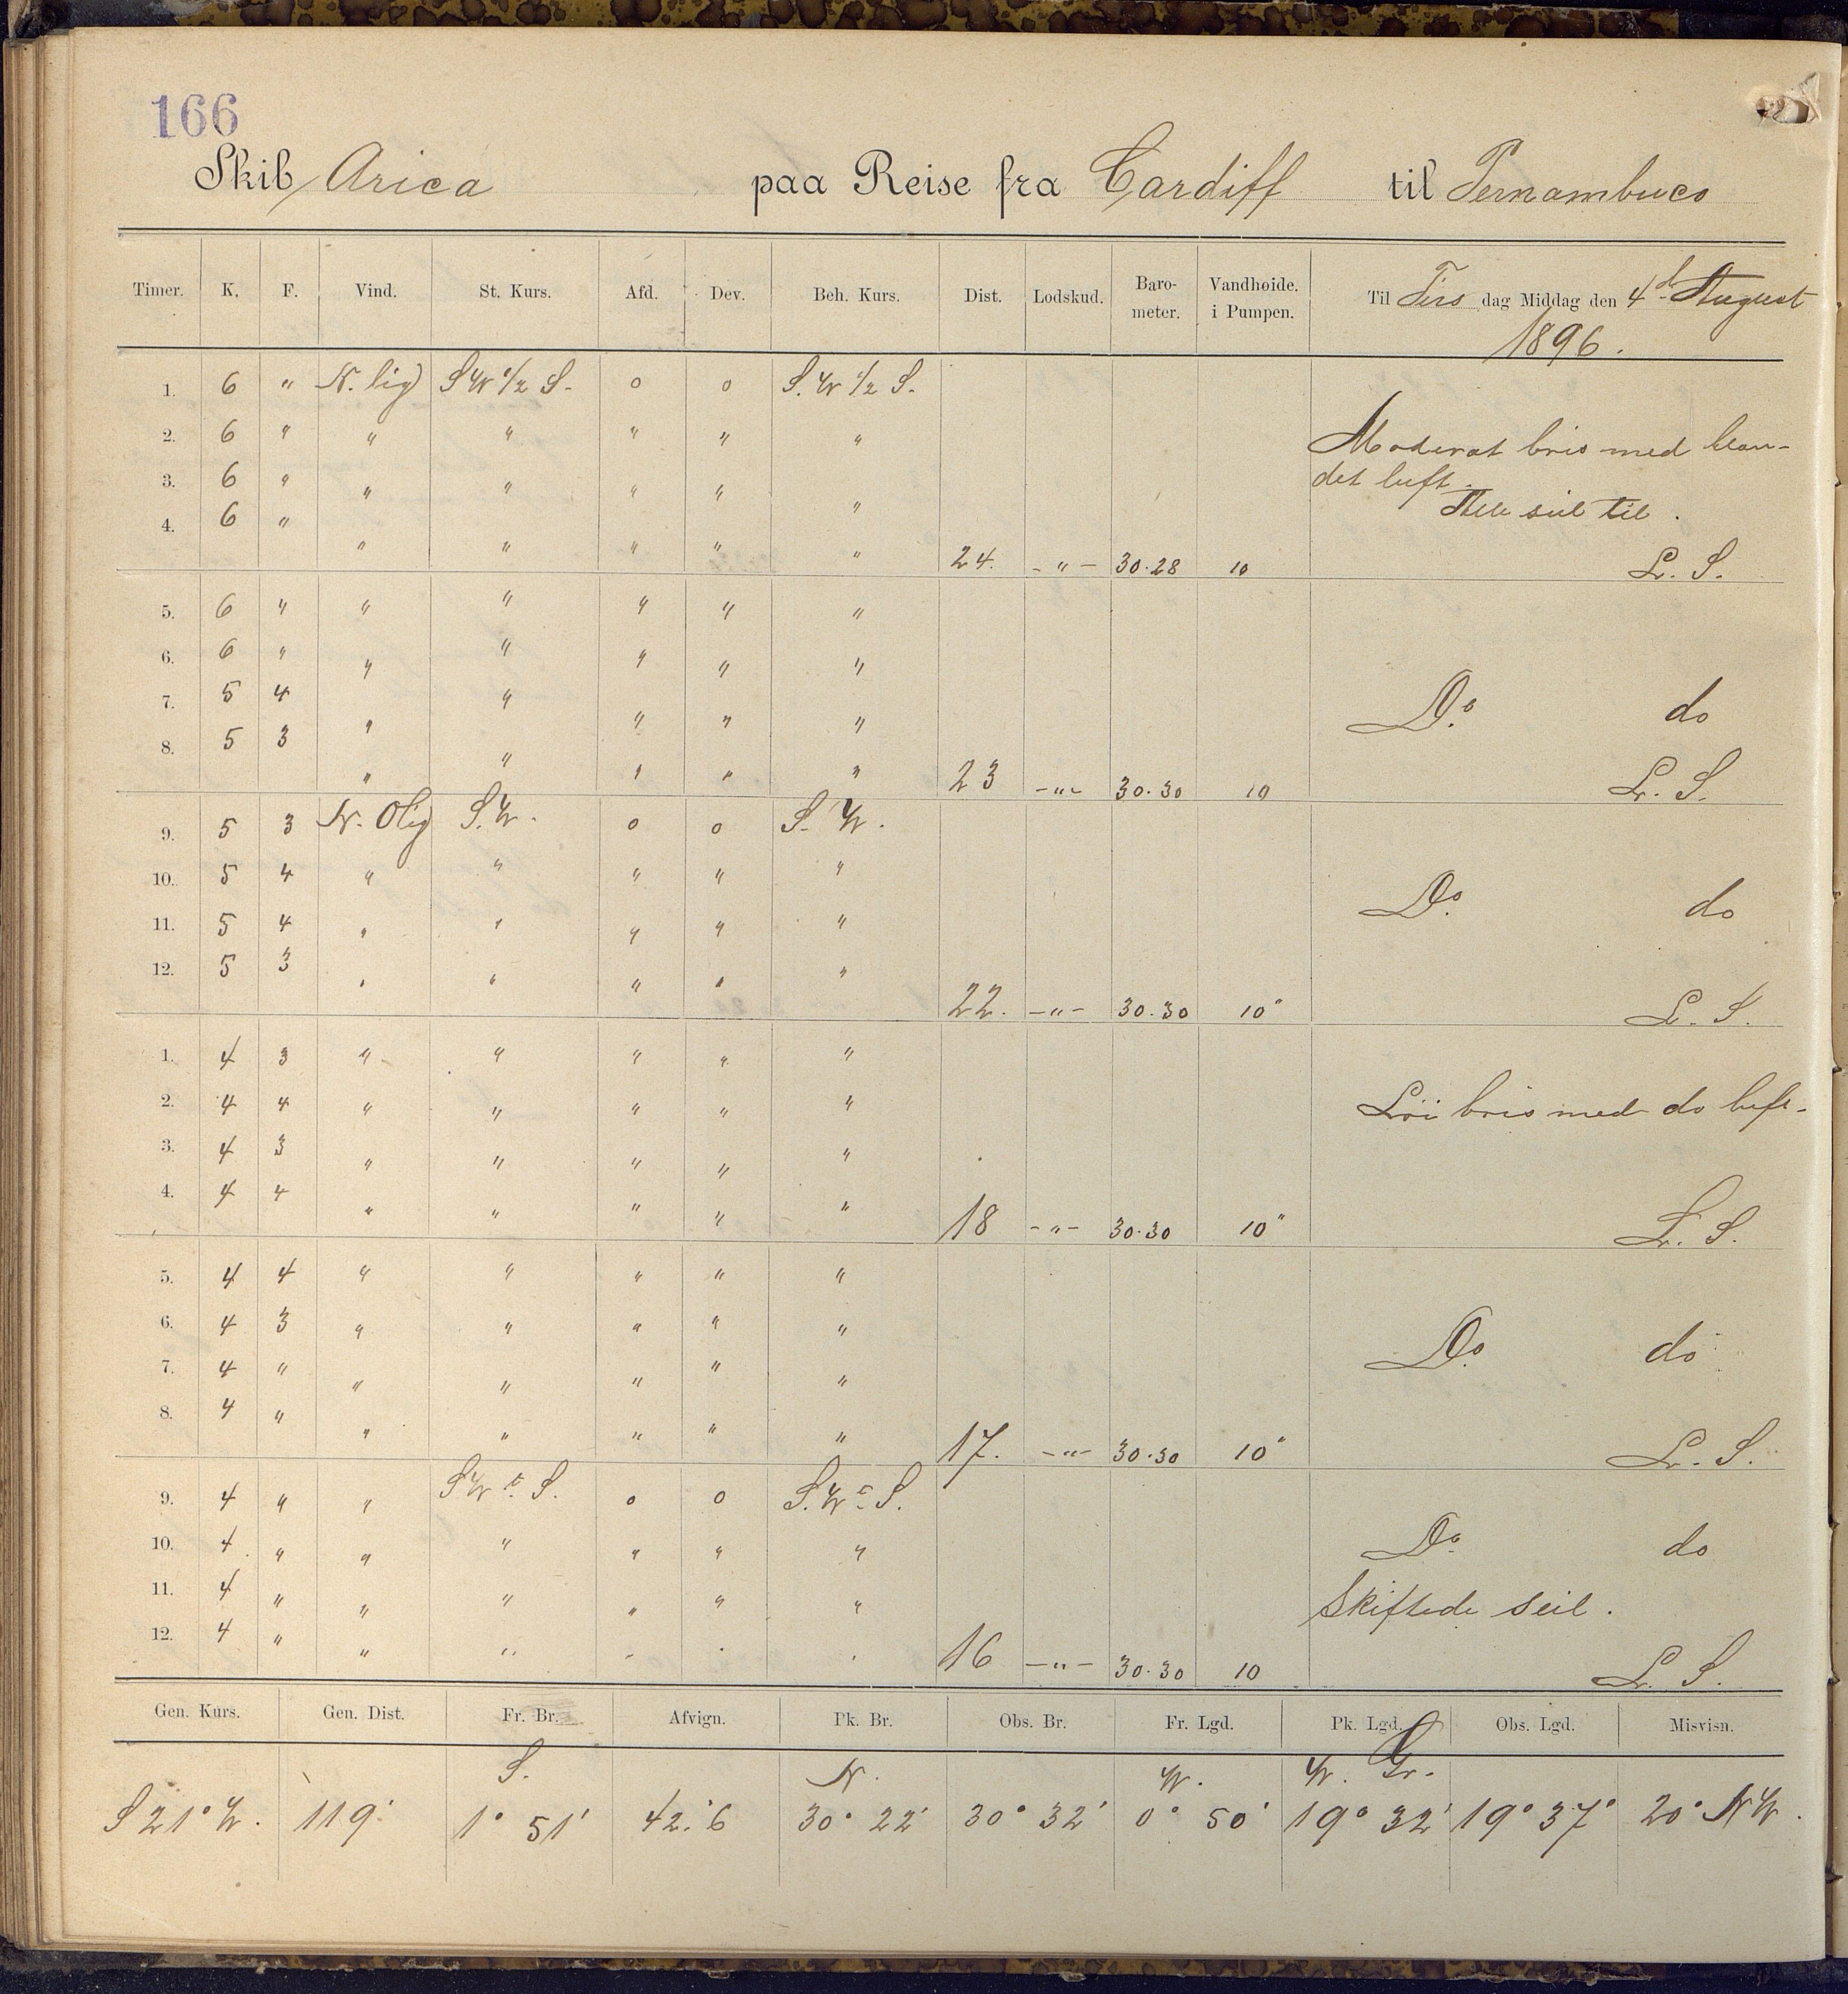 166
Skib Arica paa Reise fra Cardiff til Pernambuco
Timer. K. F. Vind. St. Kurs. Afd. Dev. Beh. Kurs. Dist. Lodskud. Baro-meter. Vandhøide. i Pumpen. Til Tirs dag Middag den 4d August
1896.
1. 6 " N. lig S W 1/2 S. 0 0 S. W 1/2 S.
2. 6 " " " " " " Moderat bris med blan-
3. 6 " " " " " " det luft.
Alle seil til.
4. 6 " " " " " " 24. - " - 30.28 10 L. S.
5. 6 " " " " " "
6. 6 " " " " " "
7. 5 4 " " " " " Do do
8. 5 3 " " " " " 23 - " - 30.30 10 L. S.
9. 5 3 N. Olig S. W. 0 0 S. W.
10. 5 4 " " " " " Do do
11. 5 4 " " " " "
12. 5 3 " " " " " 22. - " - 30.30 10" L. S.
1. 4 3 " " " " "
2. 4 4 " " " " " Löi bris med do luft.
3. 4 3 " " " " "
4. 4 4 " " " " " 18 - " - 30.30 10" L. S.
5. 4 4 " " " " "
6. 4 3 " " " " " Do do
7. 4 " " " " " "
8. 4 " " " " " " 17. - " - 30.30 10" L. S.
9. 4 " " S W t. S. 0 0 S. W t. S.
10. 4 " " " " " " Do do
11. 4 " " " " " " Skiftede seil.
12. 4 " " " " " " 16 - " - 30.30 10 L. S.
Gen. Kurs. Gen. Dist. Fr. Br. Afvign. Pk. Br. Obs. Br. Fr. Lgd. Pk. Lgd. Obs. Lgd. Misvisn.
S. N. W. W. Gr.
S 21° W. 119' 1° 51' 42.'6 30° 22' 30° 32' 0° 50' 19° 32' 19° 37' 20° N W.